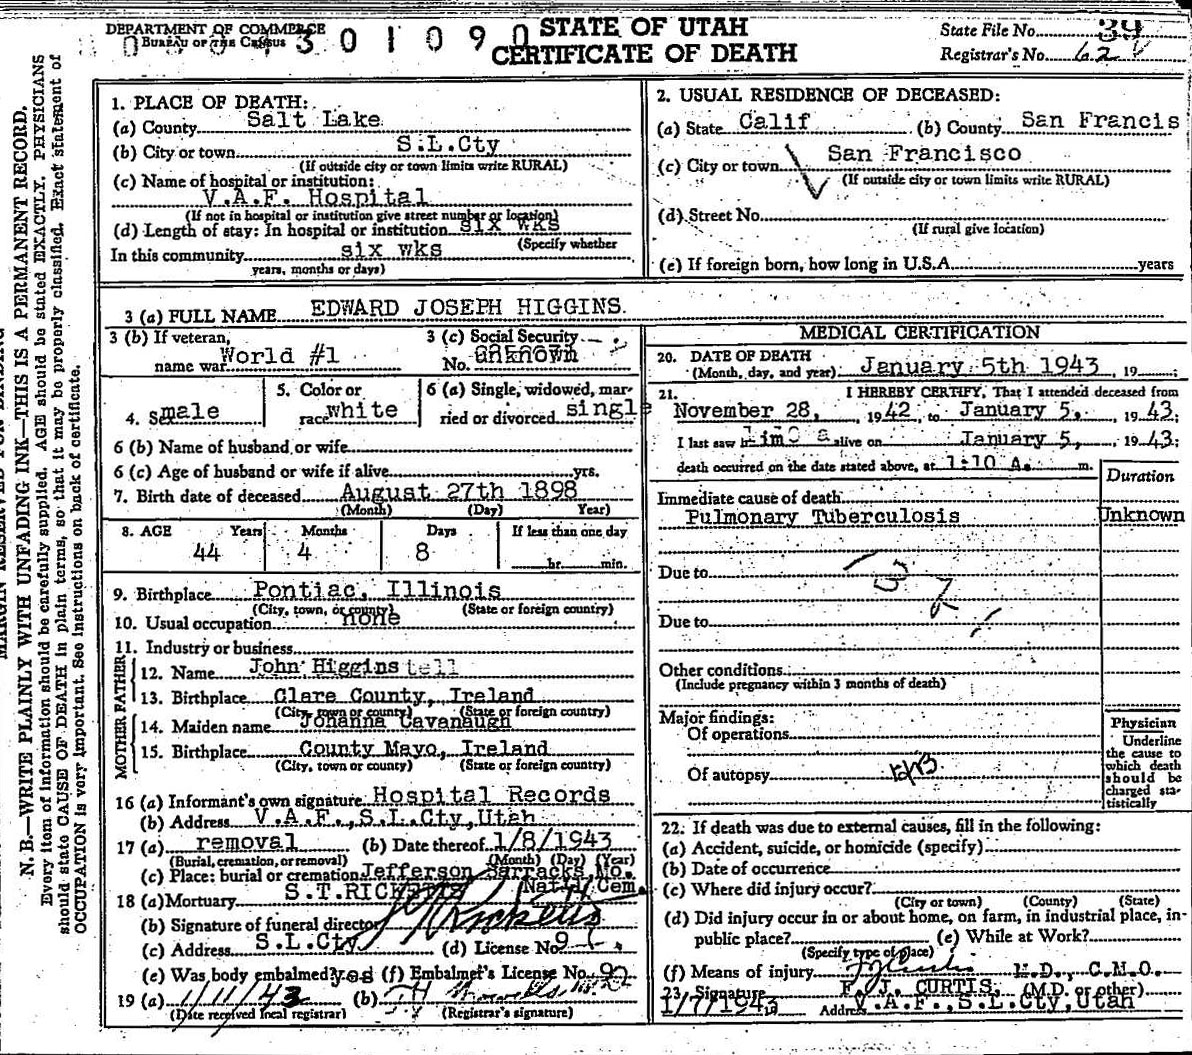 DEPARTMENT OF COMMERCE
BUREAU OF THE CENSUS
3 0 1 0 9 0
STATE OF UTAH
CERTIFICATE OF DEATH
State File No. 39
Registrar's No. 62
N. B.—WRITE PLAINLY WITH UNFADING INK—THIS IS A PERMANENT RECORD.
Every item of information should be carefully supplied. AGE should be stated EXACTLY. PHYSICIANS
should state CAUSE OF DEATH in plain terms, so that it may be properly classified. Exact statement of
OCCUPATION is very important. See instructions on back of certificate.
1. PLACE OF DEATH:
(a) County Salt Lake
(b) City or town S.L.Cty
(If outside city or town limits write RURAL)
(c) Name of hospital or institution:
V.A.F. Hospital
(If not in hospital or institution give street number or location)
(d) Length of stay: In hospital or institution six wks
(Specify whether
In this community six wks
years, months or days)
2. USUAL RESIDENCE OF DECEASED:
(a) State Calif (b) County San Francis
(c) City or town San Francisco
(If outside city or town limits write RURAL)
(d) Street No.
(If rural give location)
(e) If foreign born, how long in U.S.A. years
3 (a) FULL NAME EDWARD JOSEPH HIGGINS.
3 (b) If veteran,
name war World #1
3 (c) Social Security
No. unknown
4. Sex male
5. Color or
race white
6 (a) Single, widowed, mar-
ried or divorced single
6 (b) Name of husband or wife
6 (c) Age of husband or wife if alive yrs.
7. Birth date of deceased August 27th 1898
(Month) (Day) Year)
8. AGE Years Months Days If less than one day
44 4 8
hr. min.
9. Birthplace Pontiac, Illinois
(City, town, or county) (State or foreign country)
10. Usual occupation none
11. Industry or business
FATHER
12. Name John Higgins tell
13. Birthplace Clare County, Ireland
(City, town or county) (State or foreign country)
MOTHER
14. Maiden name Johanna Cavanaugh
15. Birthplace County Mayo, Ireland
(City, town or county) (State or foreign country)
16 (a) Informant's own signature Hospital Records
(b) Address V.A.F.,S.L.Cty,Utah
17 (a) removal (b) Date thereof 1/8/1943
(Burial, cremation, or removal) (Month) (Day) (Year)
(c) Place: burial or cremation Jefferson Barracks, Mo.
Nat'l Cem.
18 (a) Mortuary S.T.RICKETTS
(b) Signature of funeral director
(c) Address S.L.Cty (d) License No. 91
(e) Was body embalmed? yes (f) Embalmer's License No. 92
19 (a) 1/11/43 (b)
(Date received local registrar) (Registrar's signature)
MEDICAL CERTIFICATION
20. DATE OF DEATH
(Month, day, and year) January 5th 1943, 19
21. I HEREBY CERTIFY, That I attended deceased from
November 28, 1942, to January 5, 1943;
I last saw him alive on January 5, 1943;
death occurred on the date stated above, at 1:10 A. m.
Duration
Immediate cause of death
Pulmonary Tuberculosis Unknown
Due to
Due to
Other conditions
(Include pregnancy within 3 months of death)
Major findings:
Of operations
Of autopsy
Physician
Underline
the cause to
which death
should be
charged sta-
tistically
22. If death was due to external causes, fill in the following:
(a) Accident, suicide, or homicide (specify)
(b) Date of occurrence
(c) Where did injury occur?
(City or town) (County) (State)
(d) Did injury occur in or about home, on farm, in industrial place, in-
public place? (e) While at Work?
(Specify type of place)
(f) Means of injury M.D., C.M.O.
23. Signature F. J. CURTIS, (M.D. or other)
1/7/1943 Address V.A.F.,S.L.Cty,Utah